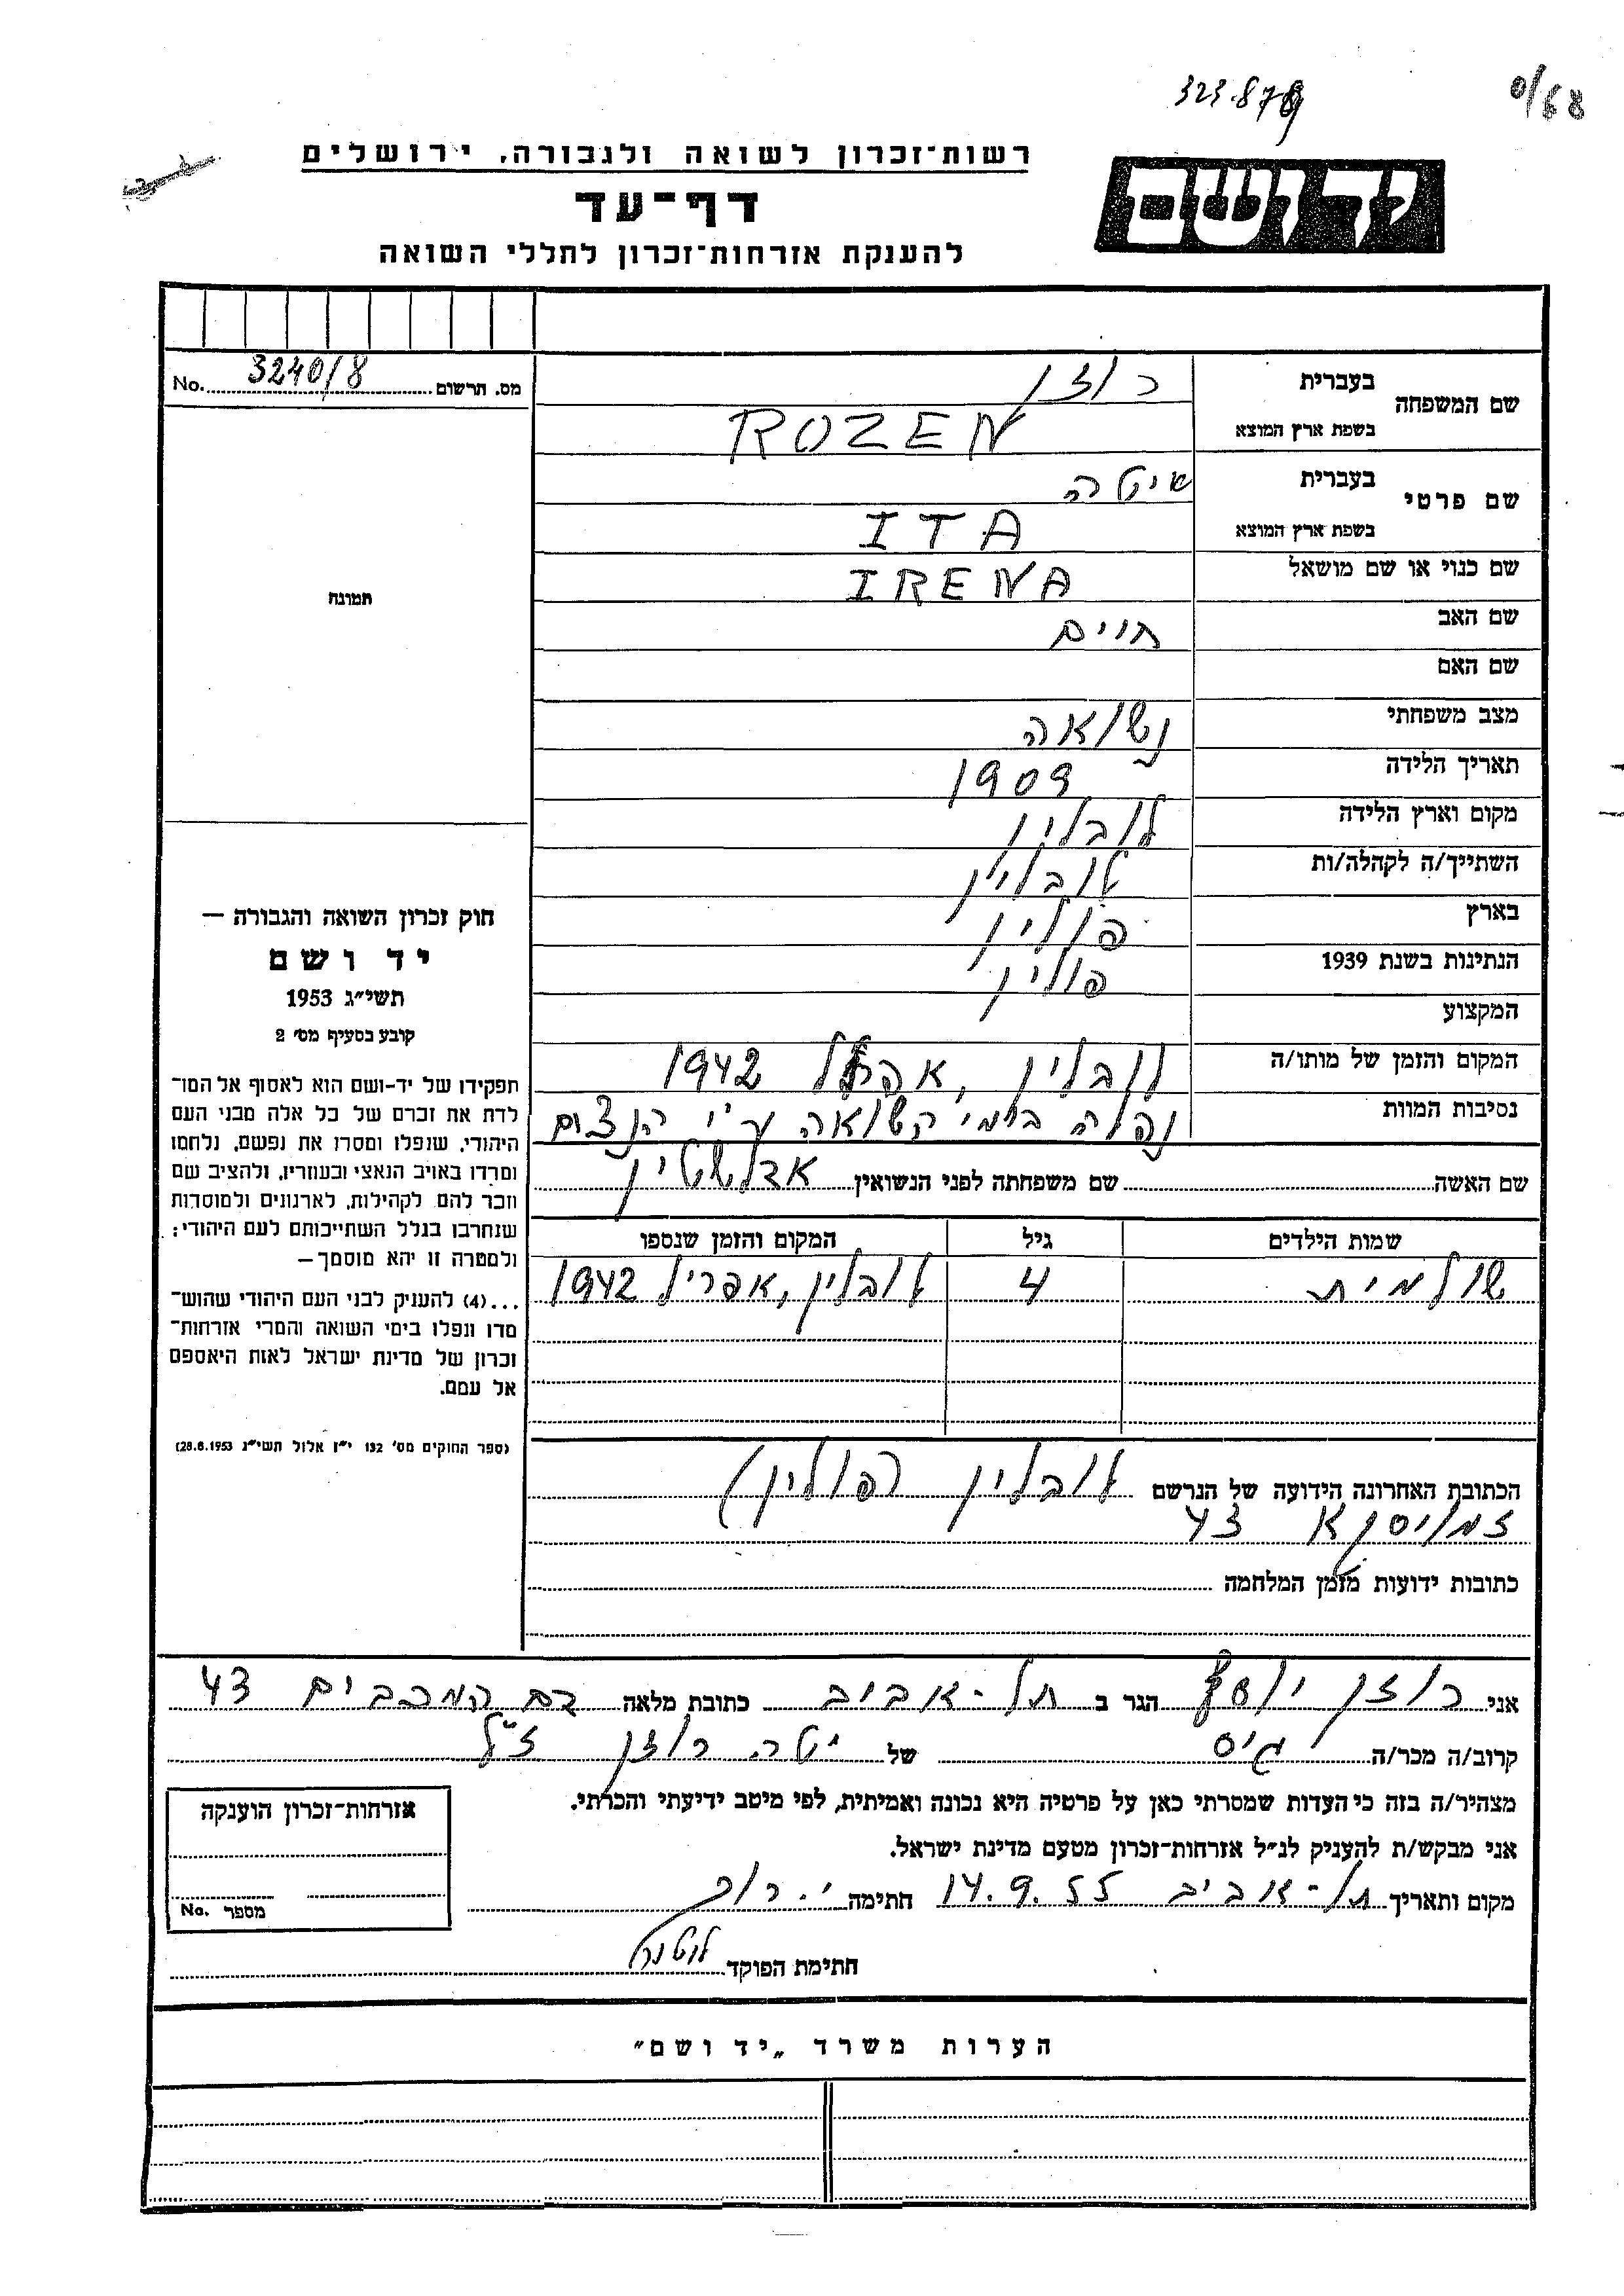 323.879
רשות־זכרון לשואה ולגבורה, ירושלים
יד ושם
דף־עד
להענקת אזרחות־זכרון לחללי השואה
מס. הרשום 3240/8 No.
שם המשפחה בעברית רוזן
בשפת ארץ המוצא ROZEN
שם פרטי בעברית איטה
בשפת ארץ המוצא ITA
שם כנוי או שם מושאל IRENA
תמונה
שם האב חיים
שם האם
מצב משפחתי נשואה
תאריך הלידה 1909
מקום וארץ הלידה לובלין
השתייך/ה לקהלה/ות לובלין
בארץ פולין
הנתינות בשנת 1939 פולין
המקצוע
המקום והזמן של מותו/ה לובלין, 1942
נסיבות המוות נפלה בימי השואה ע"י הנאצים
שם האשה שם משפחתה לפני הנשואין אדלשטיין
שמות הילדים גיל המקום והזמן שנספו
שולמית 4 לובלין, אפריל 1942
הכתובת האחרונה הידועה של הנרשם לובלין (פולין)
43
כתובות ידועות מזמן המלחמה
חוק זכרון השואה והגבורה —
יד ושם
תשי״ג 1953
קובע בסעיף מס׳ 2
תפקידו של יד־ושם הוא לאסוף אל המו־
לדת את זכרם של כל אלה מבני העם
היהודי, שנפלו ומסרו את נפשם, נלחמו
ומרדו באויב הנאצי ובעוזריו, ולהציב שם
וזכר להם לקהילות, לארגונים ולמוסדות
שנחרבו בגלל השתייכותם לעם היהודי;
ולמטרה זו יהא מוסמך—
...(4) להעניק לבני העם היהודי שהוש־
מדו ונפלו בימי השואה והמרי אזרחות־
זכרון של מדינת ישראל לאות היאספם
אל עמם.
(ספר החוקים מס׳ 132 י״ז אלול תשי״ג 28.8.1953)
אני רוזן יוסף הגר ב תל-אביב כתובת מלאה המכבים 43
קרוב/ה מכר/ה גיס של יטה רוזן ז"ל
מצהיר/ה בזה כי העדות שמסרתי כאן על פרטיה היא נכונה ואמיתית, לפי מיטב ידיעתי והכרתי.
אני מבקש/ת להעניק לנ״ל אזרחות־זכרון מטעם מדינת ישראל.
מקום ותאריך תל-אביב 14.9.55 חתימה
חתימת הפוקד
אזרחות־זכרון הוענקה
מספר No.
הערות משרד „יד ושם״